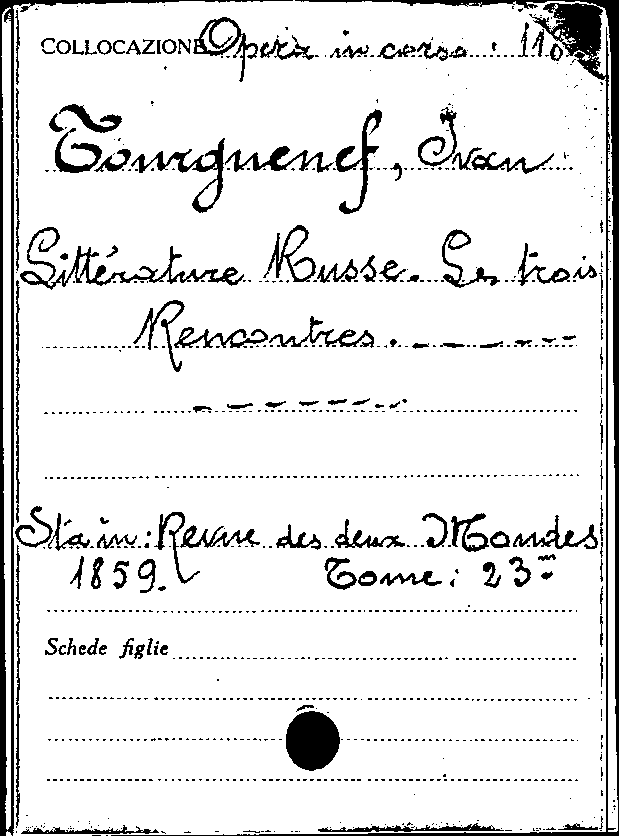 COLLOCAZIONE Opera in corso. 110
Tourguenef, Ivan
Littérature Russe. Les trois
Rencontres. _ _ _ _ _ _
_ _ _ _ _ _ _ _
Sta in: Revue des deux Mondes
1859. Tome: 23m
Schede figlie